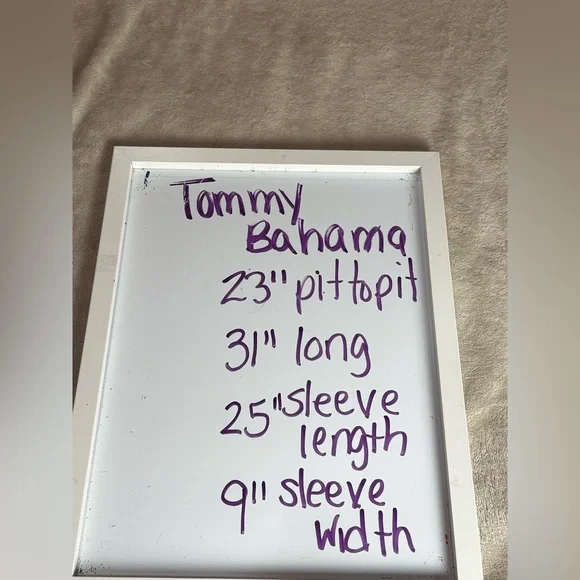 Tommy
Bahama
23" pit to pit
31" long
25" sleeve
length
9" sleeve
width